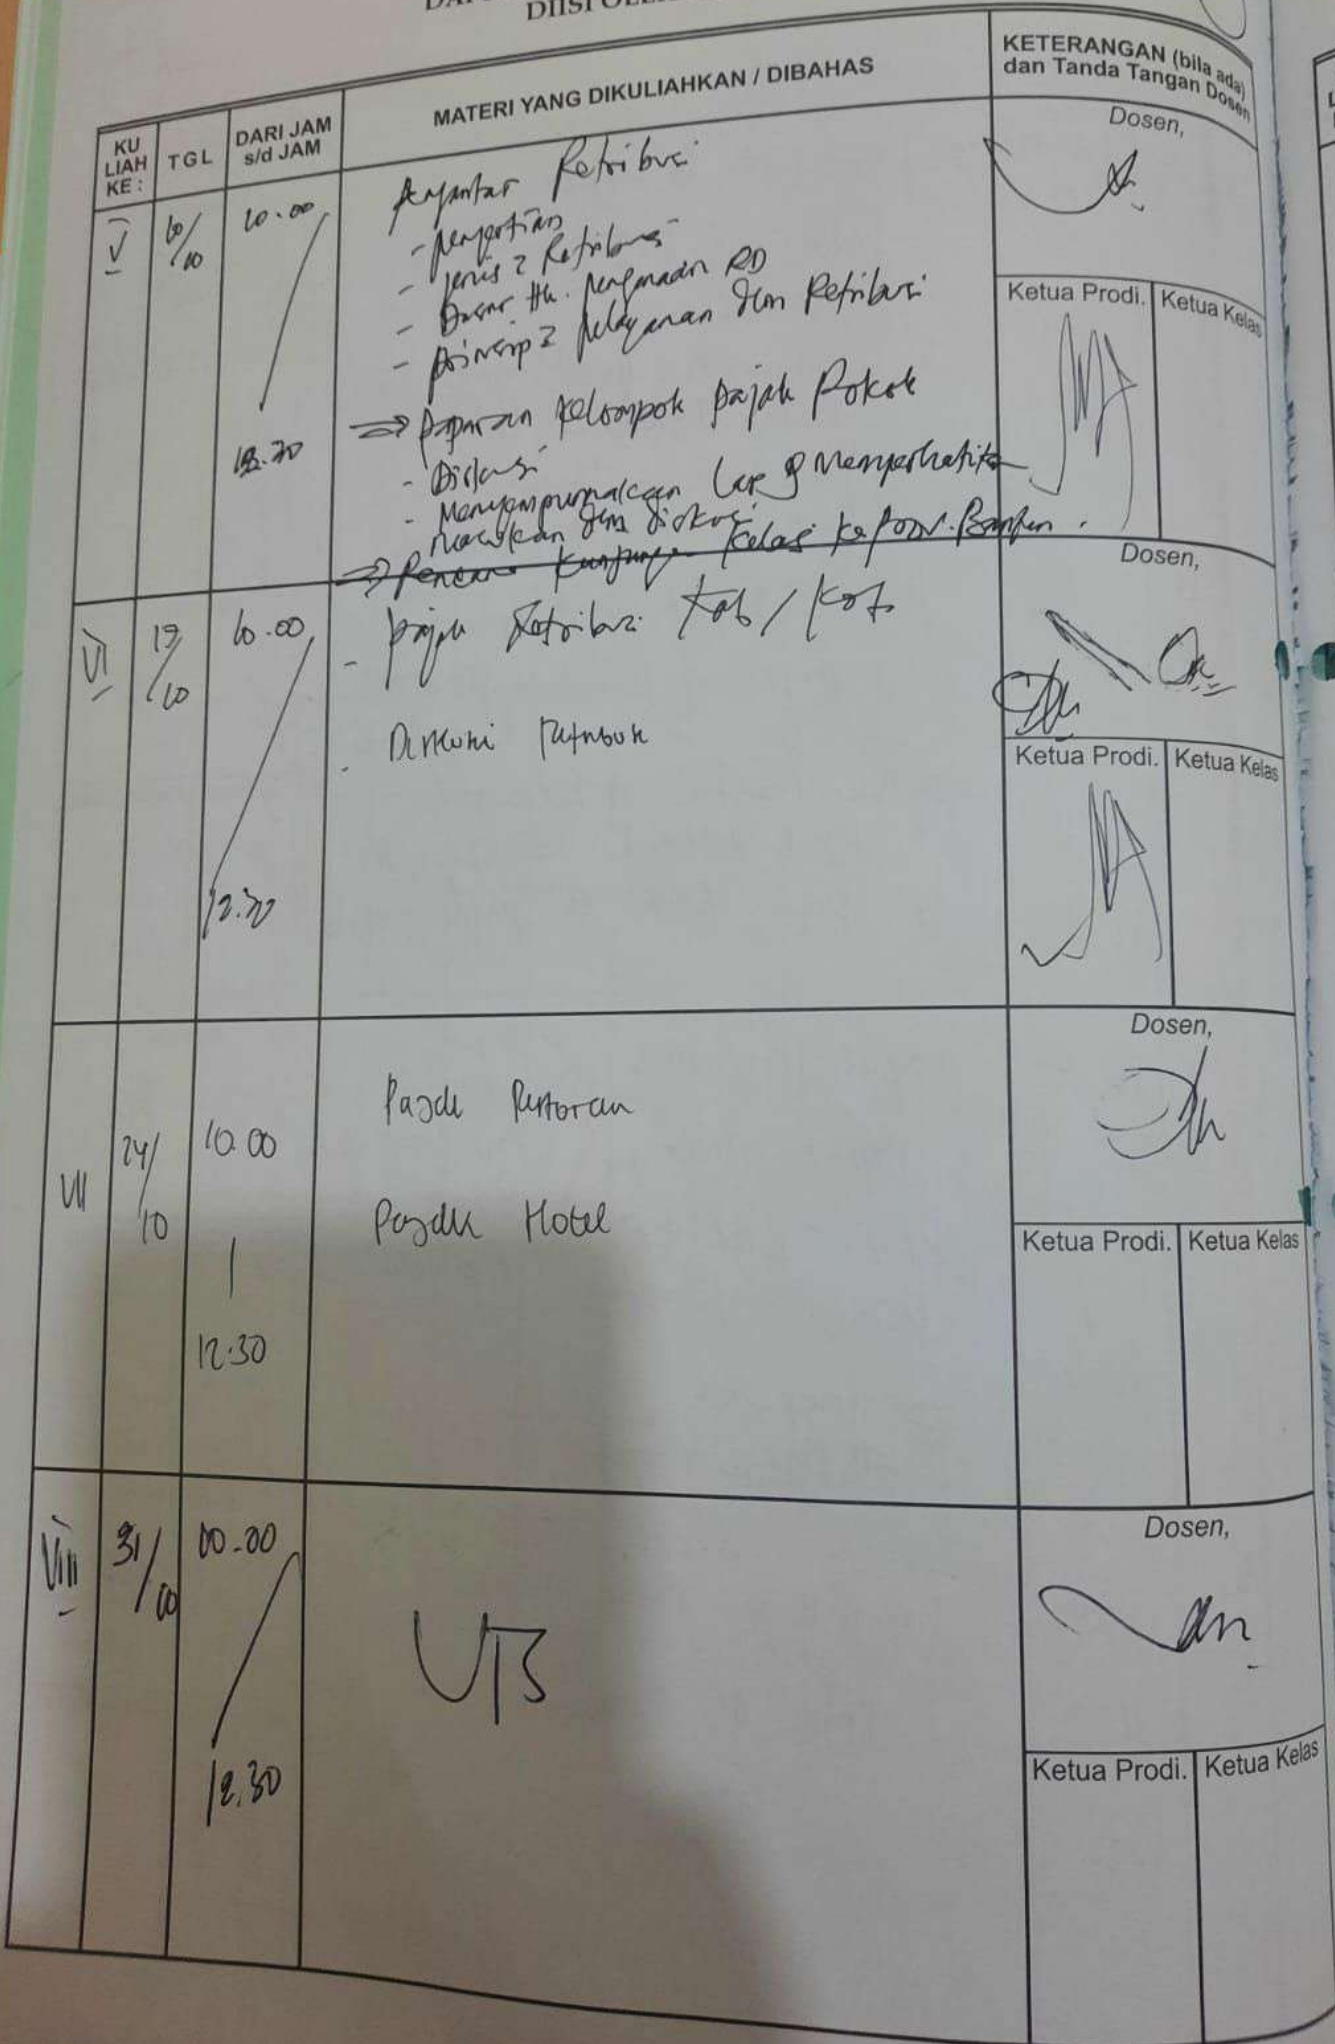 DIISI OLEH
KU LIAH KE :
TGL
DARI JAM s/d JAM
MATERI YANG DIKULIAHKAN / DIBAHAS
KETERANGAN (bila ada) dan Tanda Tangan Dosen
V
10/10
10.00
12.30
Pengantar Retribusi
- pengertian
- Jenis2 Retribusi
- Dasar Hk. pengenaan RD
- prinsip2 pelayanan dlm Retribusi
=> paparan Kelompok pajak Rokok
- Diskusi
- Menyempurnakan Lap memperhatikan
masukan dlm diskusi
=> Rencana Kunjungan Kelas ke Prov. Banten.
Dosen,
Ketua Prodi.
Ketua Kelas
VI
19/10
10.00
12.30
- pajak Retribusi Kab/Kota
Dosen,
. Diskusi
Ketua Prodi.
Ketua Kelas
VII
24/10
10.00
12.30
Pajak Restoran
Pajak Hotel
Dosen,
Ketua Prodi.
Ketua Kelas
VIII
31/10
10.00
12.30
UTS
Dosen,
Ketua Prodi.
Ketua Kelas